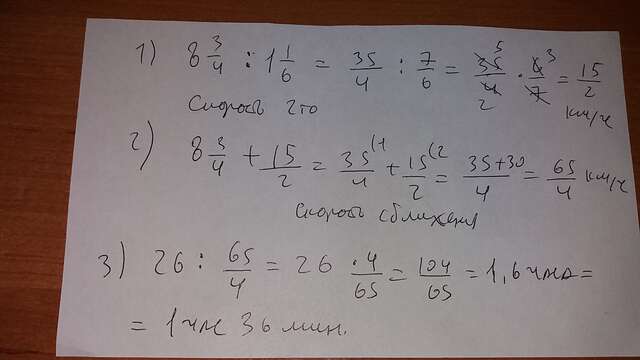 1) 8 3/4 : 1 1/6 = 35/4 : 7/6 = 35/4 · 6/7 = 15/2 км/ч
5 3 2
скорость 2го
2) 8 3/4 + 15/2 = 35/4 (1 + 15/2 (2 = 35+30/4 = 65/4 км/ч
скорость сближения
3) 26 : 65/4 = 26 · 4/65 = 104/65 = 1,6 часа =
= 1 час 36 мин.